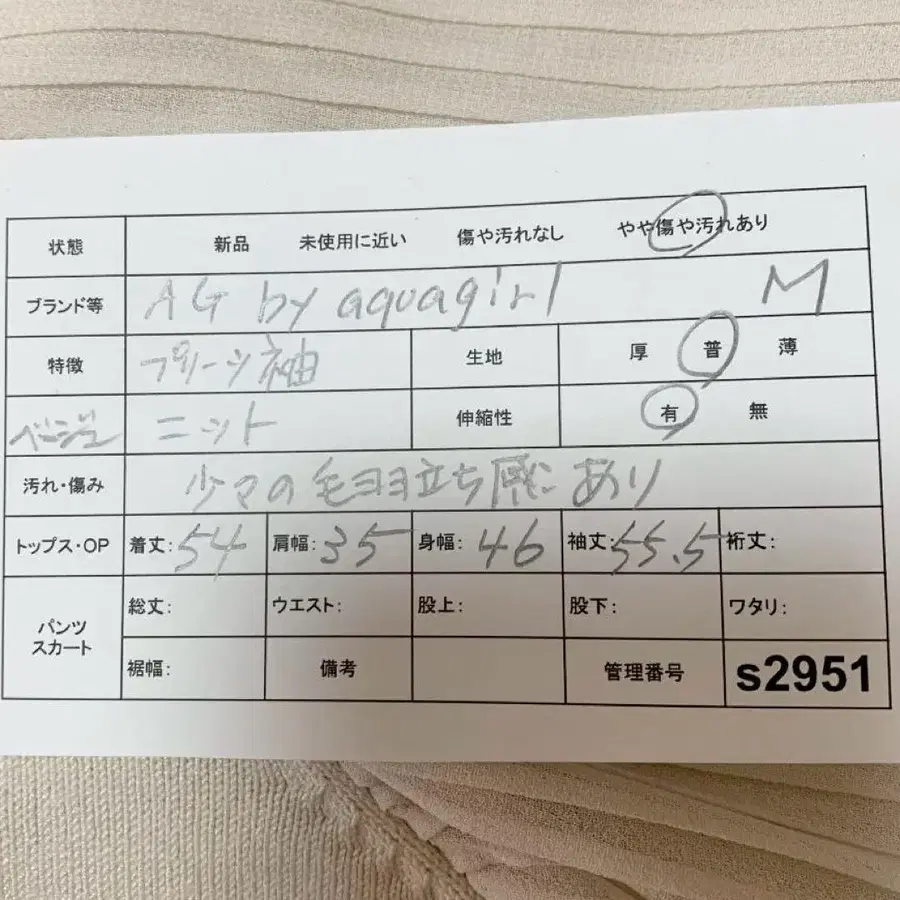 状態 新品 未使用に近い 傷や汚れなし やや傷や汚れあり
ブランド等 AG by aquagirl M
特徴 プリーツ袖 生地 厚 普 薄
ベージュ ニット 伸縮性 有 無
汚れ・傷み 少々の毛ヨヨ立ち感にあり
トップス・OP 着丈:54 肩幅:35 身幅:46 袖丈:55.5 裄丈:
パンツ スカート 総丈: ウエスト: 股上: 股下: ワタリ:
裾幅: 備考 管理番号 s2951